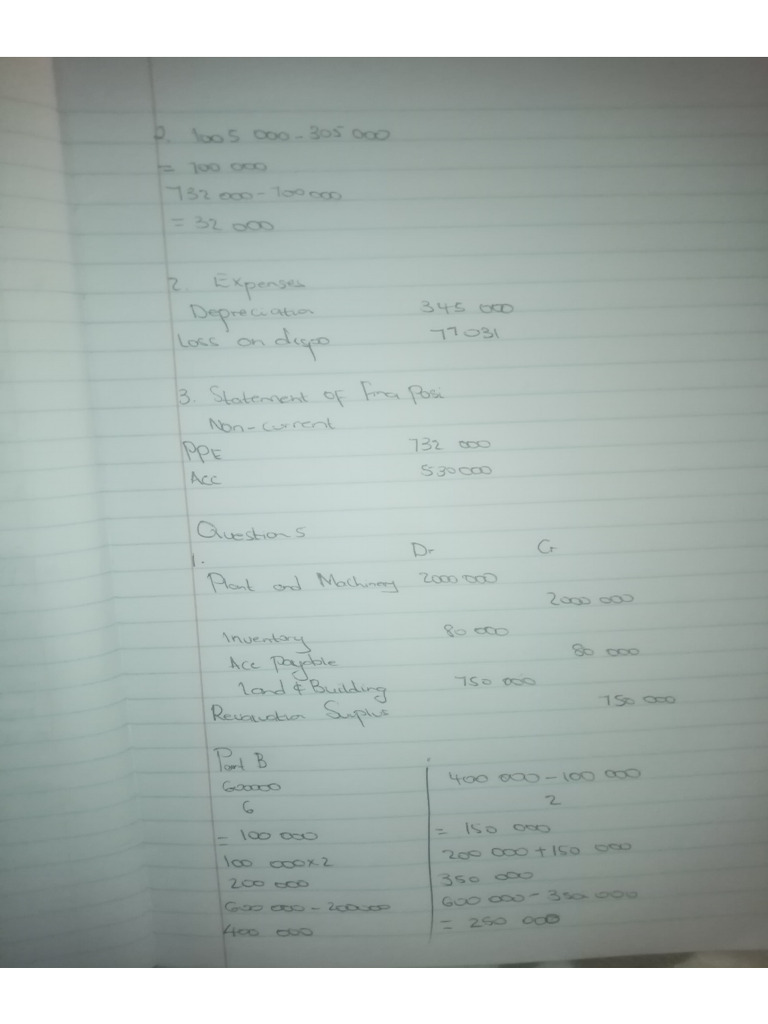 2. 1005 000 - 305 000
= 700 000
732 000 - 700 000
= 32 000
2. Expenses
Depreciation 345 000
Loss on 77031
3. Statement of Fina Posi
Non-current
PPE 732 000
Acc 530000
Question 5
1. Dr Cr
Plant and Machinery 2000 000
2000 000
Inventory 80 000
Acc Payable 80 000
Land & Building 750 000
Revaluation Surplus 750 000
Part B
600000
6
= 100 000
100 000 x 2
200 000
600 000 - 200000
400 000
400 000 - 100 000
2
= 150 000
200 000 + 150 000
350 000
600 000 - 350 000
= 250 000